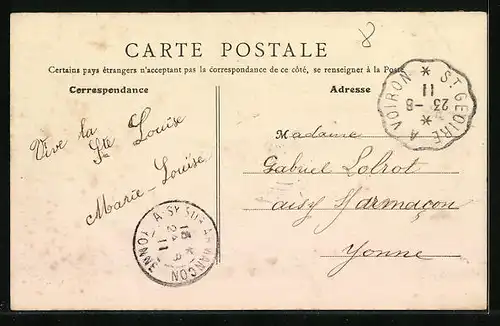 8
CARTE POSTALE
Certains pays étrangers n'acceptant pas la correspondance de ce côté, se renseigner à la Poste
Correspondance
Adresse
ST GEOIRE A VOIRON
23 - 8
11
Vive la
Ste Louise
Marie-Louise
Madame
Gabriel Lolrot
aisy S/armaçon
Yonne
AISY SUR ARMANCON
YONNE
24 - 8
11